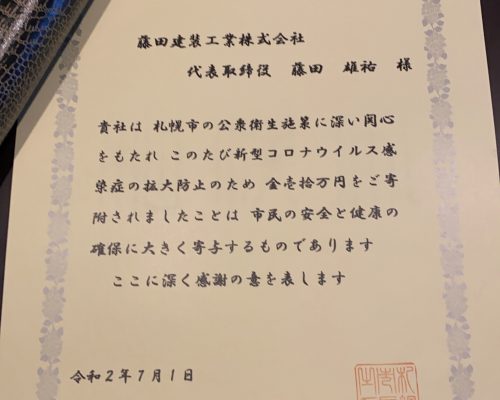 藤田建装工業株式会社
代表取締役 藤田 雄祐 様
貴社は 札幌市の公衆衛生施策に深い関心
をもたれ このたび新型コロナウイルス感
染症の拡大防止のため 金壱拾万円をご寄
附されましたことは 市民の安全と健康の
確保に大きく寄与するものであります
ここに深く感謝の意を表します
令和2年7月1日